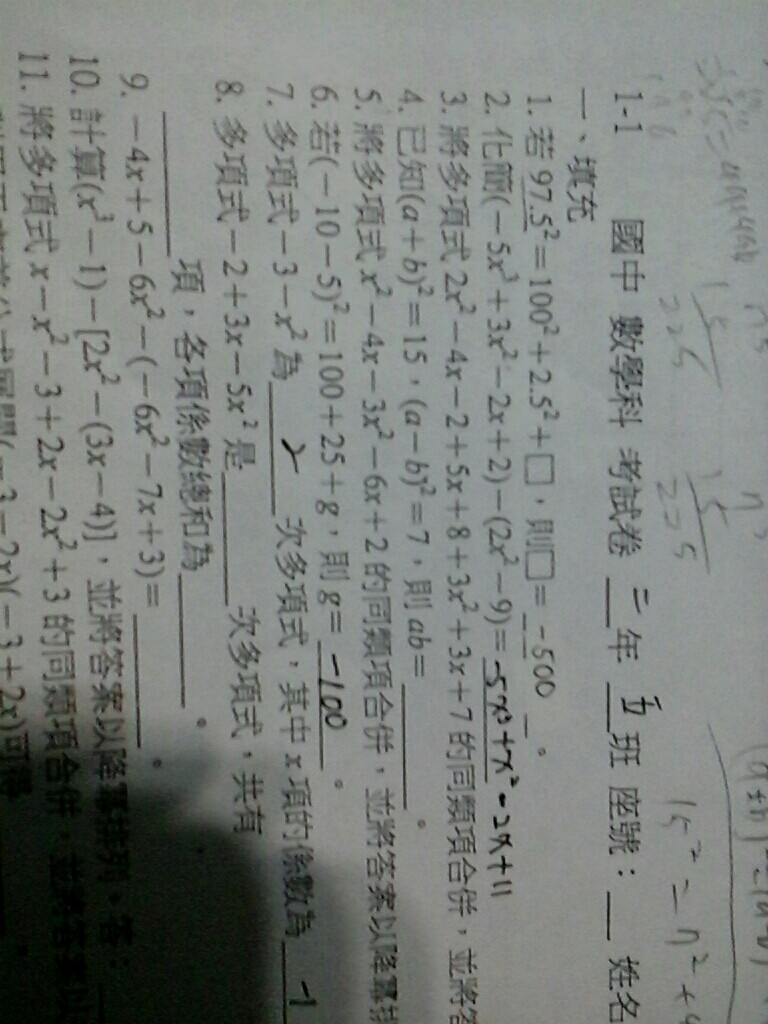 1-1 國中 數學科 考試卷 二年 五班 座號：__ 姓名
一、填充
1. 若97.5²=100²+2.5²+□，則□= -500 。
2. 化簡(−5x³+3x²−2x+2)−(2x²−9)= -5x³+x²-2x+11
3. 將多項式 2x²−4x−2+5x+8+3x²+3x+7 的同類項合併，並將答
4. 已知(a+b)²=15，(a−b)²=7，則 ab=______。
5. 將多項式 x²−4x−3x²−6x+2 的同類項合併，並將答案以降冪排
6. 若(−10−5)²=100+25+g，則 g= -100 。
7. 多項式−3−x²為 2 次多項式，其中 x 項的係數為 -1
8. 多項式−2+3x−5x²是______次多項式，共有
______項，各項係數總和為______。
9. −4x+5−6x²−(−6x²−7x+3)=______。
10. 計算(x³−1)−[2x²−(3x−4)]，並將答案以降冪排列。答：
11. 將多項式 x−x²−3+2x−2x²+3 的同類項合併，並將答案以
(−3−2x)(−3+2x)可得